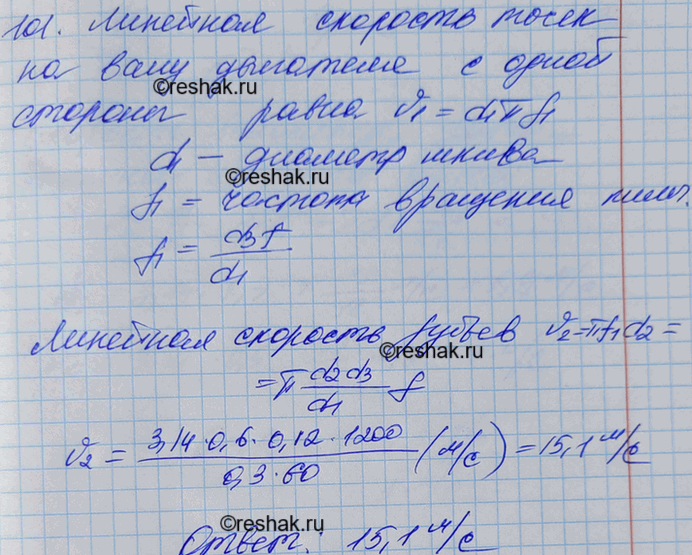 101. Линейная скорость точек
на валу двигателя с одной
©reshak.ru
стороны равна v₁ = d₁πf₁
d₁ – диаметр шкива
©reshak.ru
f₁ = частота вращения пилы.
f₁ = d₃f / d₁
©reshak.ru
Линейная скорость зубьев v₂ = πf₁d₂ =
©reshak.ru
= π d₂d₃ / d₁ f
v₂ = 3,14 · 0,6 · 0,12 · 1200 / 0,3 · 60 (м/с) = 15,1 м/с
©reshak.ru
Ответ: 15,1 м/с